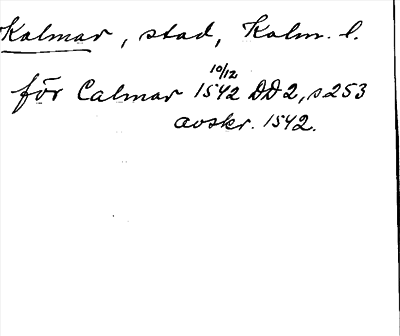 Kalmar, stad, Kalm. l.
för Calmar 1542 10/12 DD2, s 253
avskr. 1542.